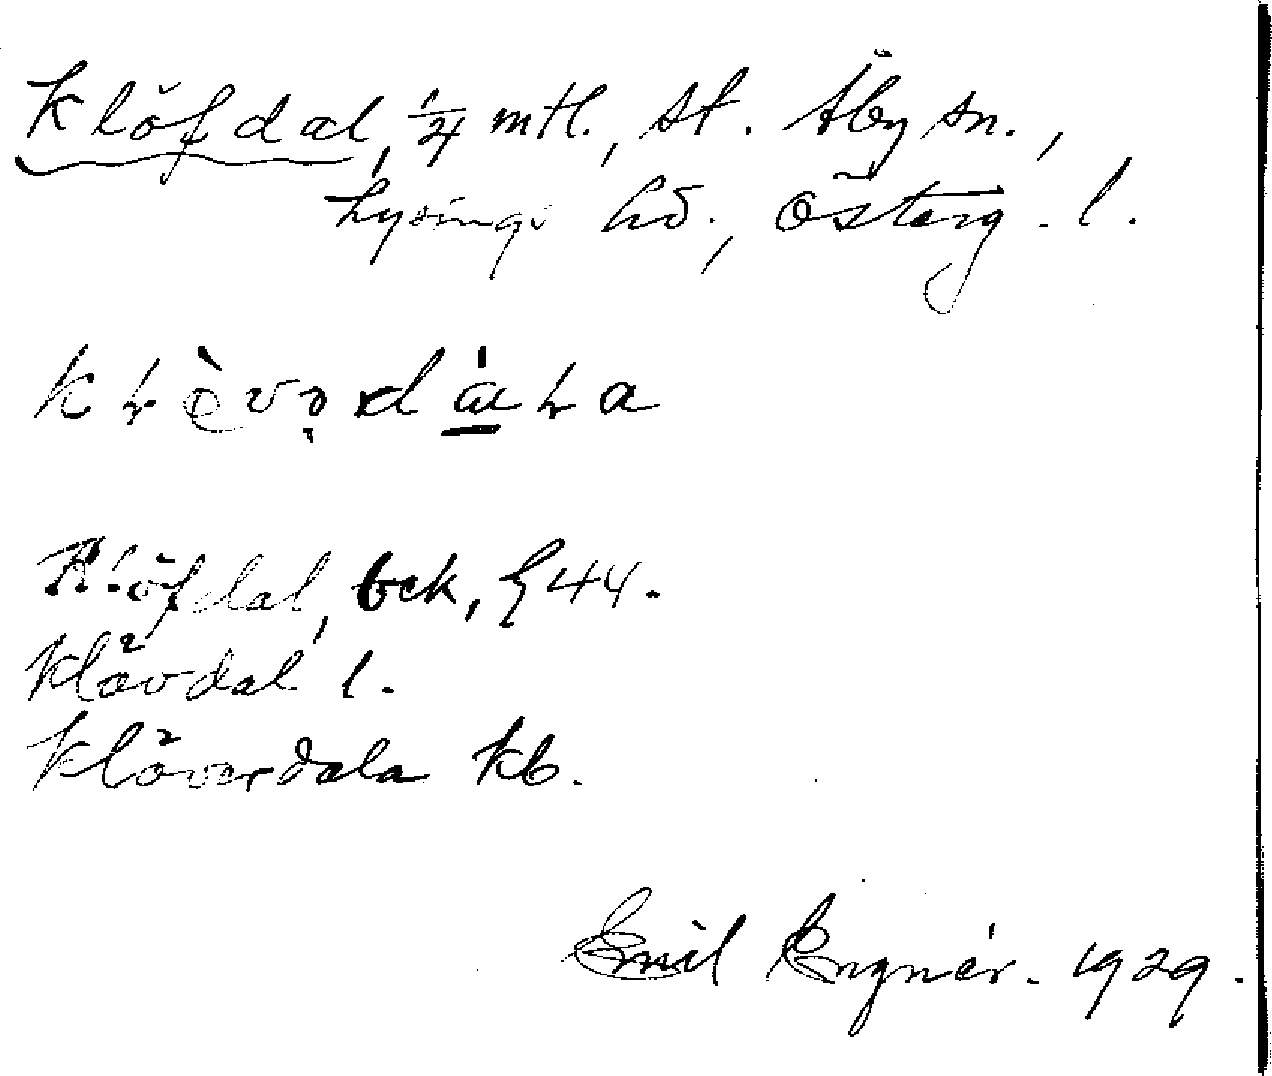 Klöfdal, 1/4 mtl., St. Åby sn.,
Lysings hd., Österg. l.
Klöfdal, bek, § 44.
Klåvdal l.
Klåverdala kb.
Emil 1929.